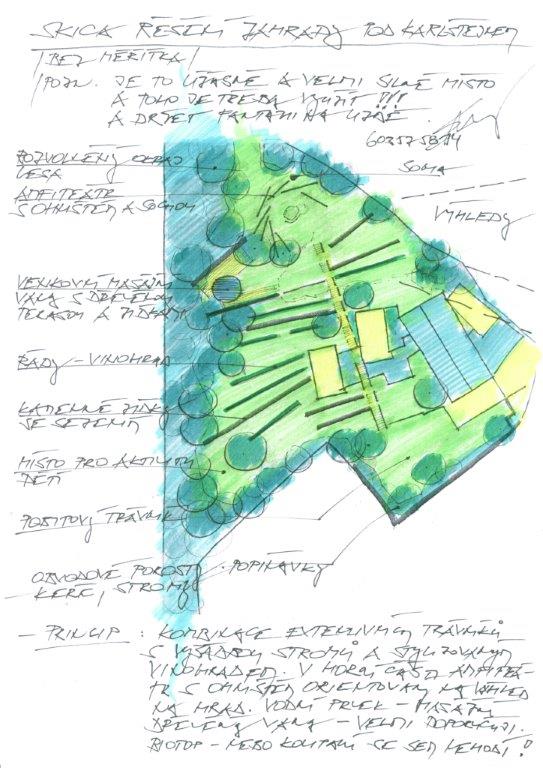 SKICA ŘEŠENÍ ZAHRADY POD KARLŠTEJNEM
/BEZ MĚŘÍTKA/
/POZN. JE TO ÚŽASNÉ A VELMI SILNÉ MÍSTO
A TOHO JE TŘEBA VYUŽÍT !!!
A DRŽET FANTAZII NA UZDĚ.
SOCHA
ROZVOLNĚNÝ OKRAJ
LESA
AMFITEÁTR
S OHNIŠTĚM A SOCHOU
VÝHLEDY
VENKOVNÍ MASÁŽNÍ
VANA S DŘEVĚNOU
TERASOU A ZÍDKAMI
ŘADY - VINOHRAD
KAMENNÉ ZÍDKY
SE SEZENÍM
MÍSTO PRO AKTIVITY
DĚTÍ
POBYTOVÝ TRÁVNÍK
OBVODOVÉ POROSTY
- KEŘE, STROMY
POPÍNAVKY
- PRINCIP : KOMBINACE EXTENZIVNÍCH TRÁVNÍKŮ
S VÝSADBOU STROMŮ A STYLIZOVANÝM
VINOHRADEM. V HORNÍ ČÁSTI AMFITEÁ-
TR S OHNIŠTĚM ORIENTOVANÝ NA VÝHLED
NA HRAD. VODNÍ PRVEK - MASÁŽNÍ
DŘEVĚNÁ VANA - VELMI DOPORUČUJI.
BIOTOP - NEBO KOUPÁNÍ SE SEM NEHODÍ!